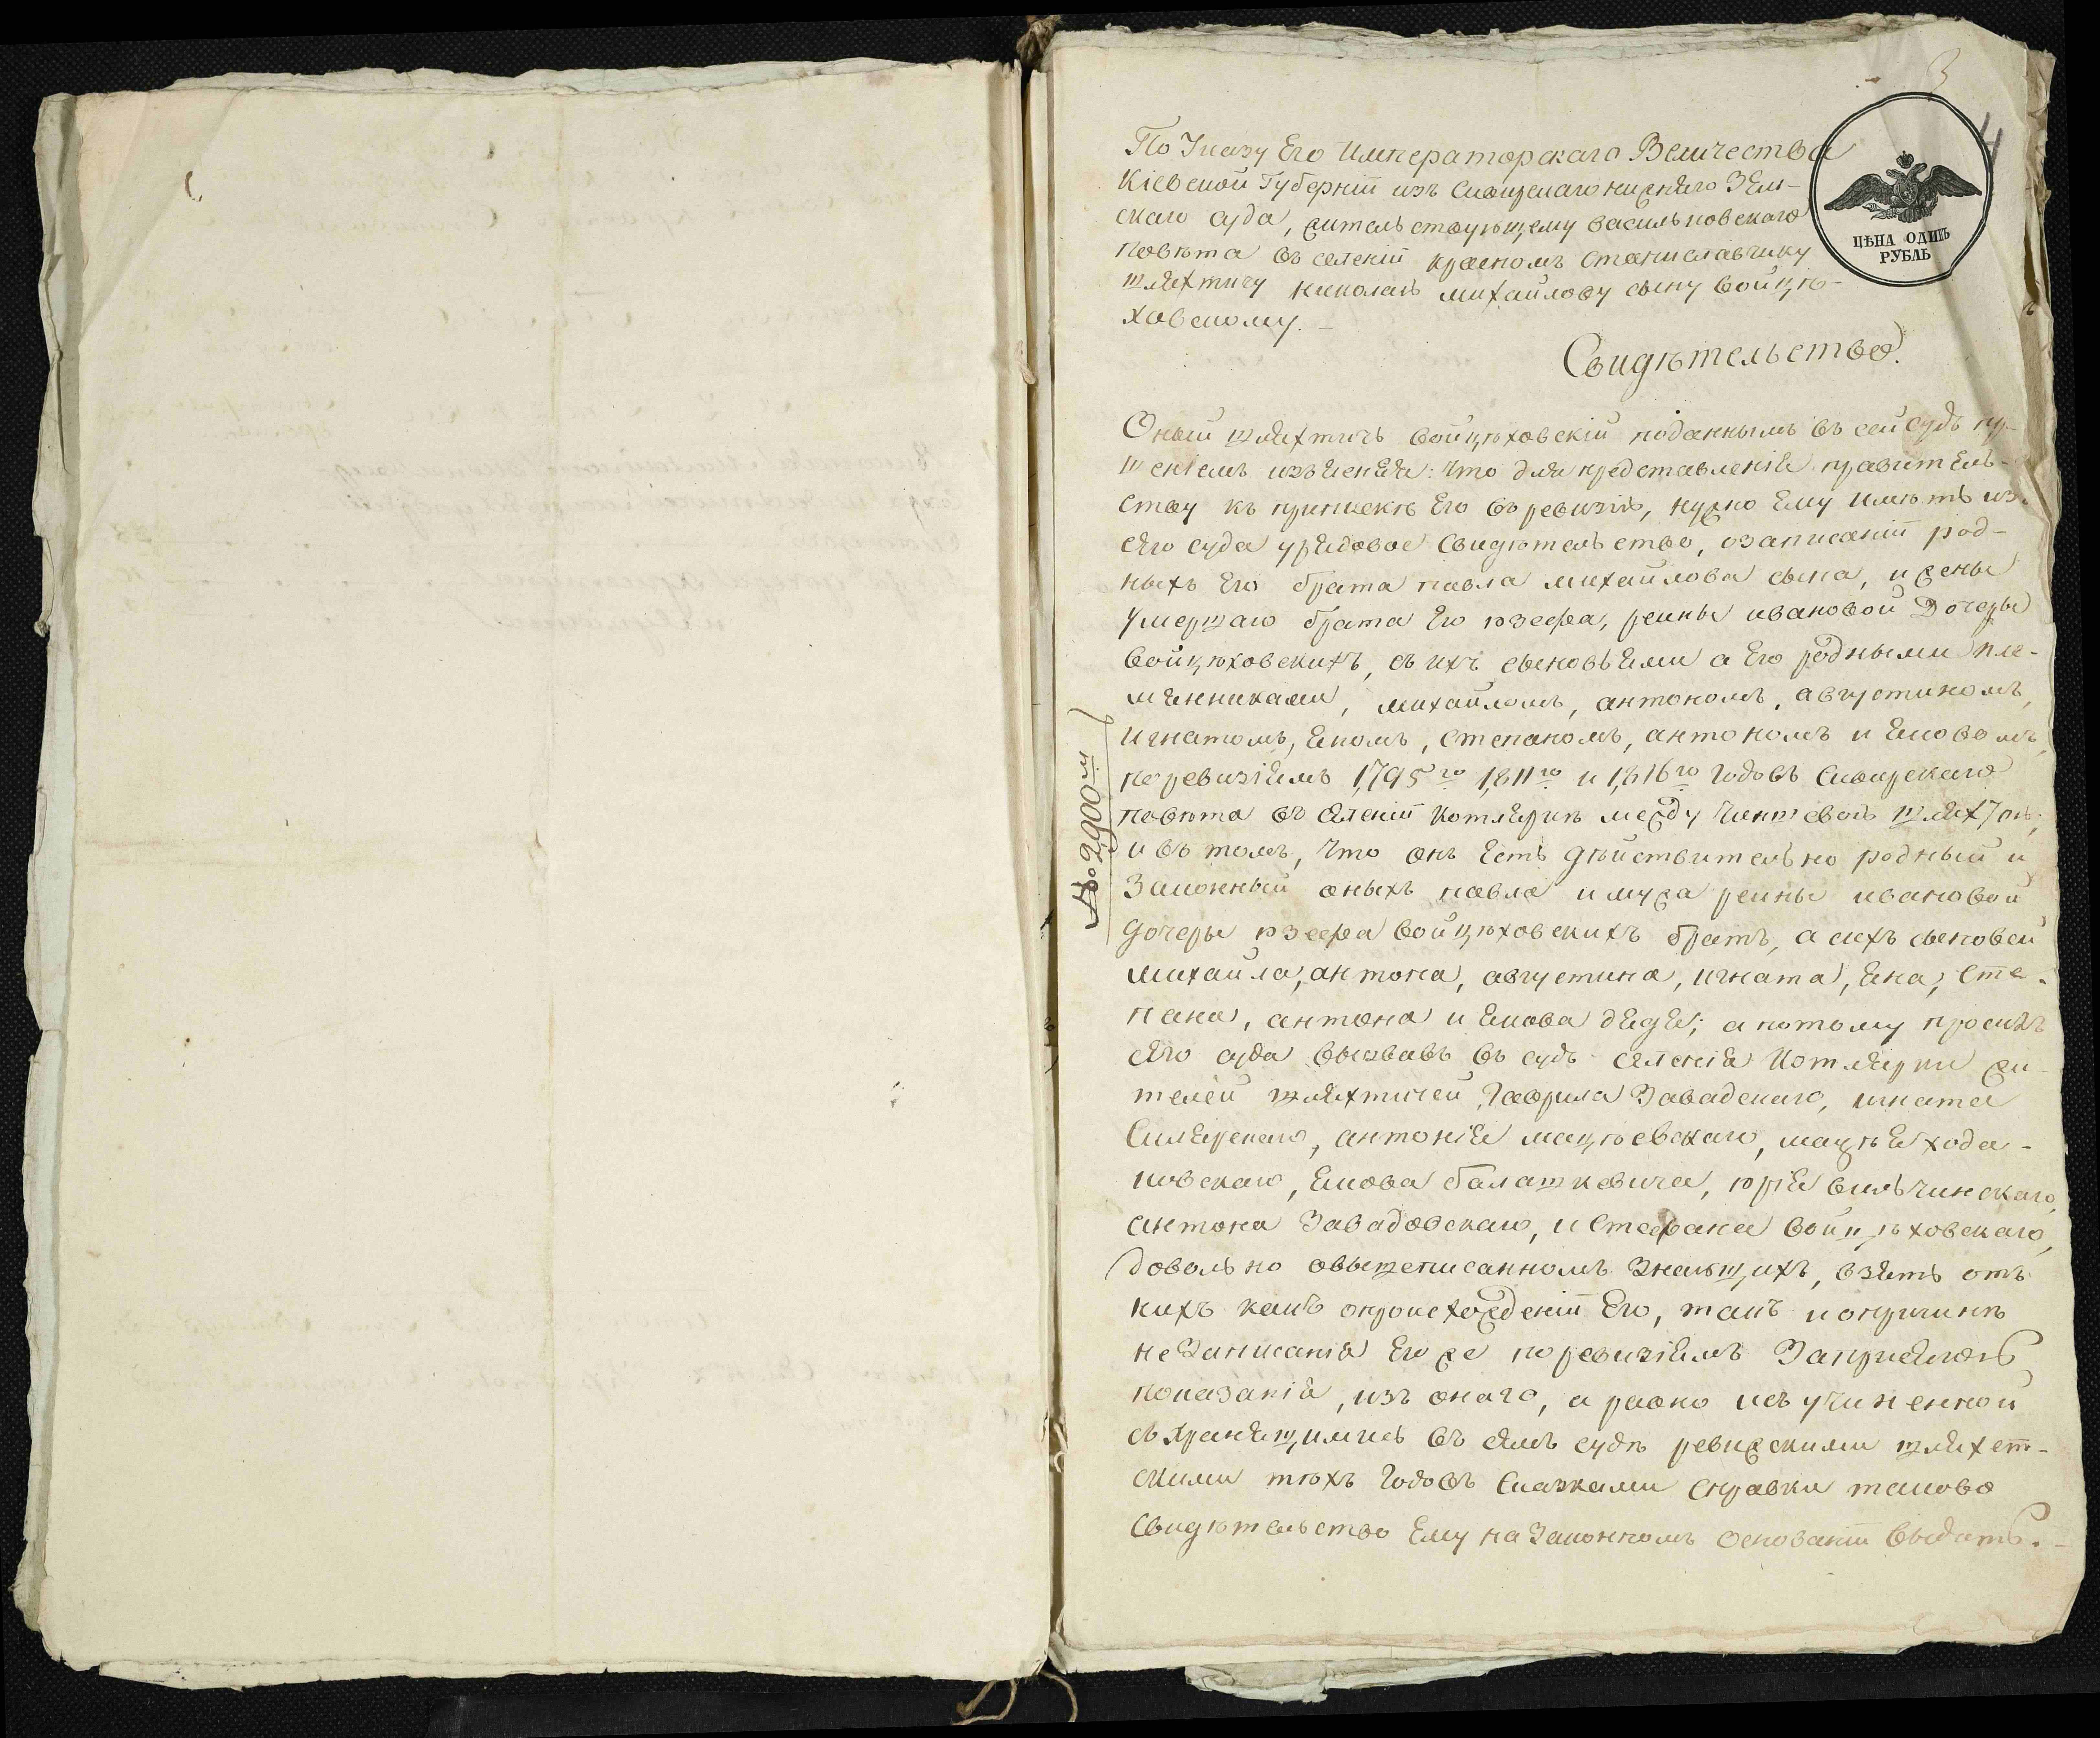 3
4
ЦѢНА ОДИНЪ
РУБЛЬ
По Указу Его Императорскаго Величества
Кіевской Губерніи изъ Сквирскаго нижняго Зем-
скаго суда, жительствующему васильковскаго
повѣта въ селеніи красномъ станиславчику
шляхтичу николаю михайлову сыну войцѣ-
ховскому.
Свидѣтельство.
Оный шляхтичь войцѣховскій поданнымъ въ сей судъ про-
шеніемъ изъясняя: что для представленія правитель-
ству къ припискѣ Его въ ревизію, нужно Ему имѣть изъ
сего суда урядовое свидѣтельство, озаписаніи род-
ныхъ Его брата павла михайлова сына, и жены
умершаго брата Его юзефа, реины ивановой дочеры
войцѣховскихъ, съ ихъ сыновьями а Его родными пле-
мянниками, михайломъ, антономъ, августиномъ,
игнатомъ, яномъ, степаномъ, антономъ и яковомъ,
поревизіямъ 1795го 1811го и 1816го годовъ Сквирскаго
повѣта въ селеніи котлярнѣ между чиншевою шляхтою;
и въ томъ, что онъ есть дѣйствительно родный и
законный оныхъ павла и мужа реины ивановой
дочеры юзефа войцѣховскихъ братъ, а ихъ сыновей
михайла, антона, августина, игната, яна, сте-
пана, антона и якова дядя; а потому просилъ
сего суда вызвавъ въ судъ селенія котлярки жи-
телей шляхтичей, гаврила завадскаго, игната
антонія мацѣевскаго, мацѣя хода-
ковскаго, якова балашкевича, юрія вильчинскаго,
антона завадовскаго, и стефана войцѣховскаго,
довольно овышеписанномъ знающихъ, взять отъ
нихъ какъ опроисхожденіи Его, такъ и опричинѣ
незаписанія Егоже поревизіямъ Заприсягою
показанія, изъ онаго, а равно исъ учиненной
съхранящимись въ семъ судѣ ревижскими шляхет-
скими тѣхъ годовъ сказками справки таково
свидѣтельство Ему на законномъ основаніи выдать.
№ 2900й